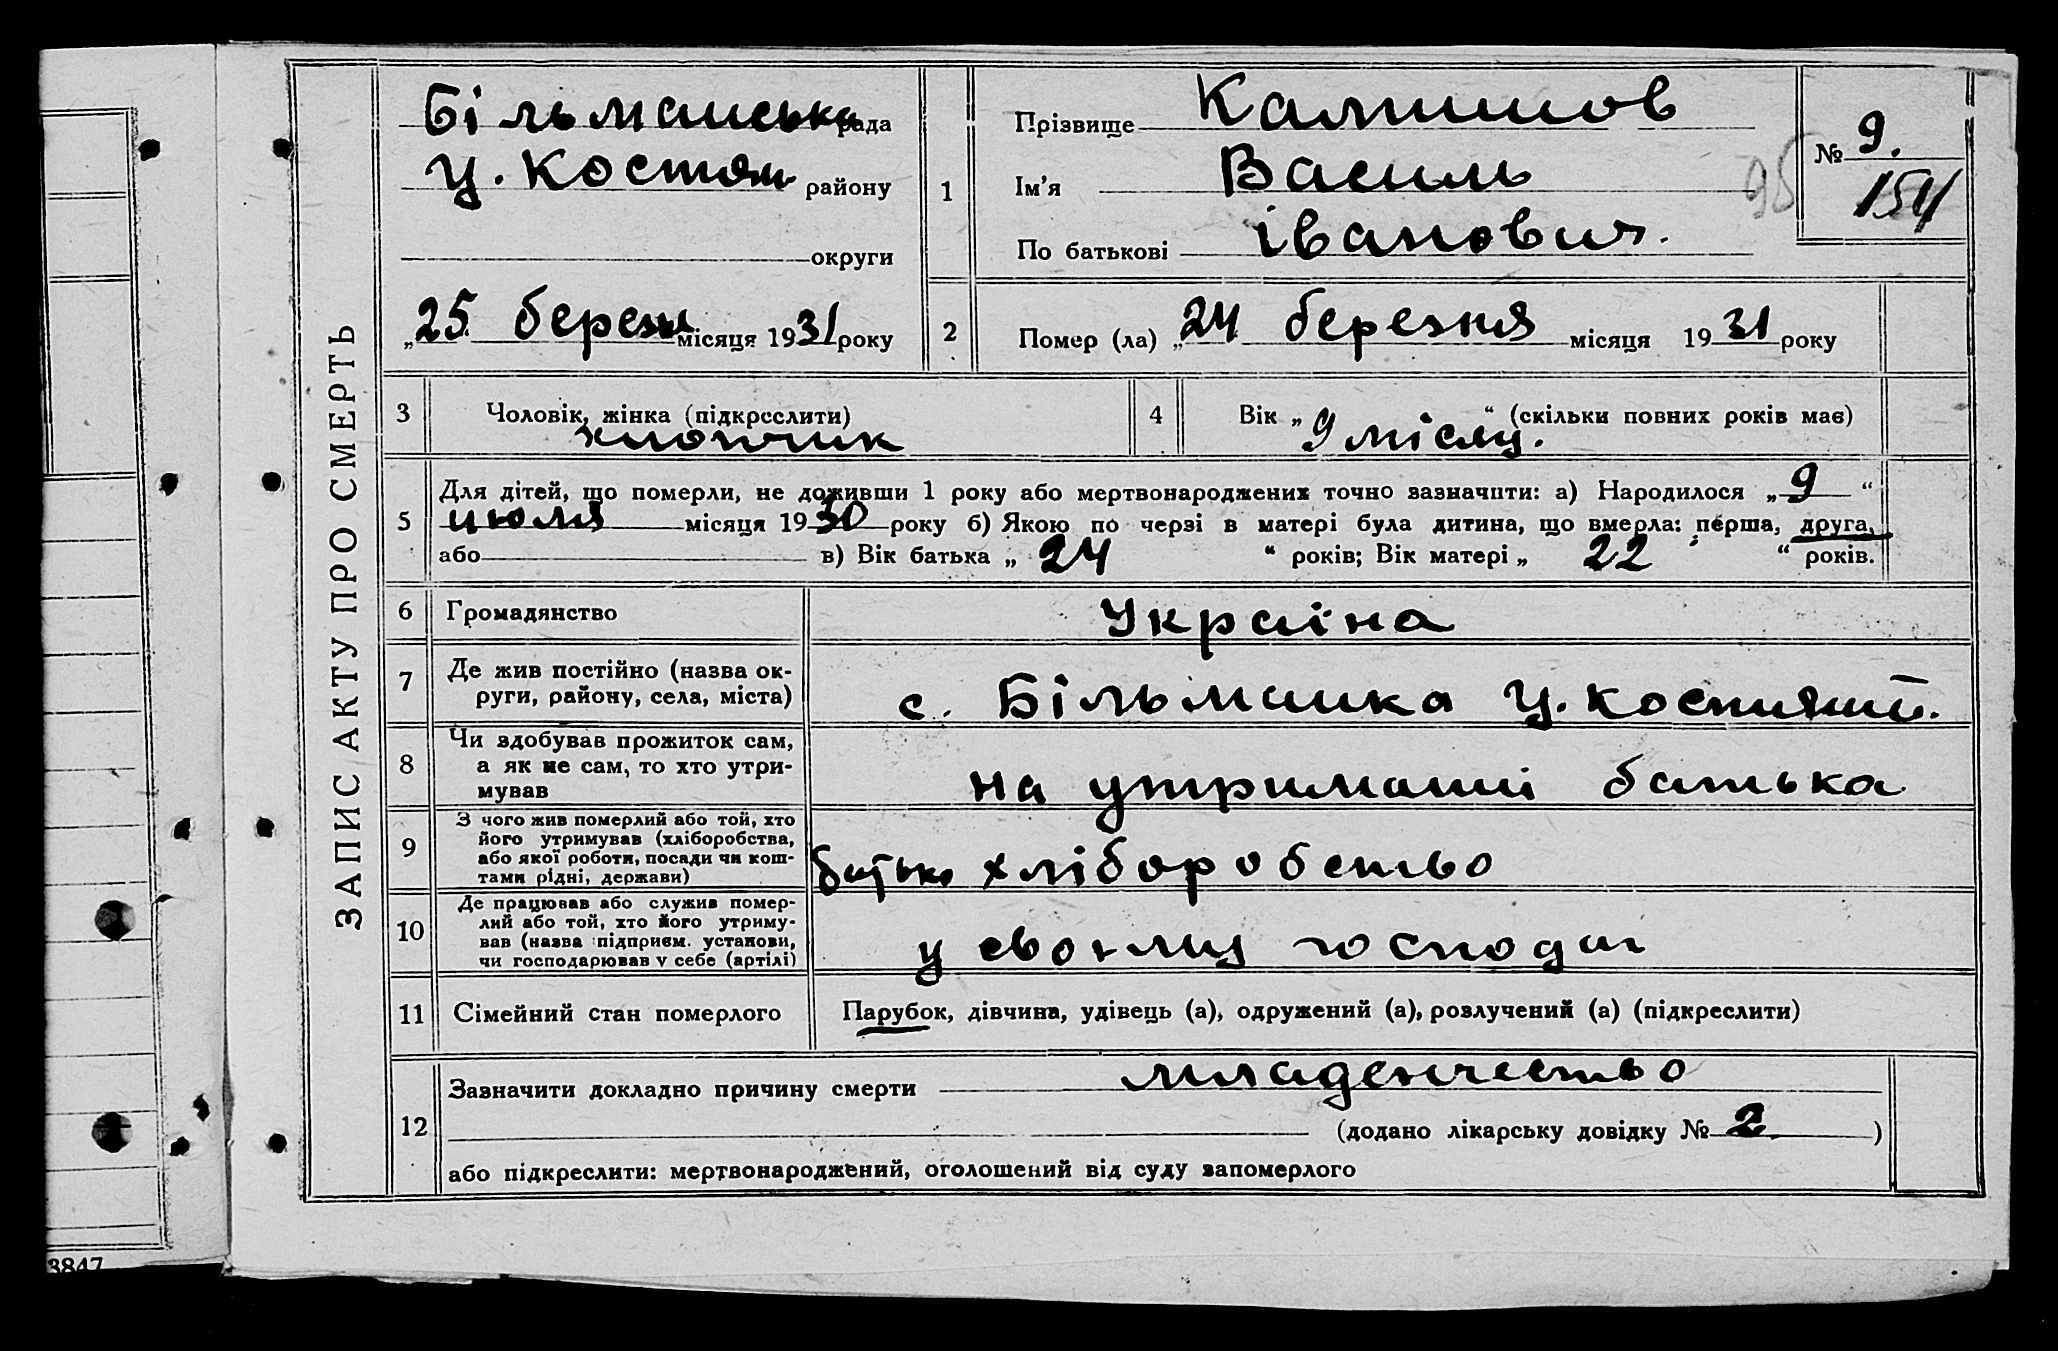 ЗАПИС АКТУ ПРО СМЕРТЬ
Більманська рада
Ц. Костян району
округи
„25 березня місяця 1931 року
1
Прізвище Калтишов
Ім'я Василь
По батькові Іванович.
№ 9.
154
95
2 Помер (ла) „24 березня місяця 1931 року
3 Чоловік, жінка (підкреслити)
хлопчик
4 Вік „9 місяц.“ (скільки повних років має)
5 Для дітей, що померли, не доживши 1 року або мертвонароджених точно зазначити: а) Народилося „9“
июля місяця 1930 року б) Якою по черзі в матері була дитина, що вмерла: перша, друга,
або в) Вік батька „24“ років; Вік матері „22“ років.
6 Громадянство Україна
7 Де жив постійно (назва ок-
руги, району, села, міста) с. Більманка Ц. Костянт.
8 Чи здобував прожиток сам,
а як не сам, то хто утри-
мував на утриманні батька
9 З чого жив померлий або той, хто
його утримував (хліборобства,
або якої роботи, посади чи кош-
тами рідні, держави) батько хліборобство
10 Де працював або служив помер-
лий або той, хто його утриму-
вав (назва підприєм. установи,
чи господарював у себе (артілі) у своєму господаг
11 Сімейний стан померлого Парубок, дівчина, удівець (а), одружений (а), розлучений (а) (підкреслити)
12 Зазначити докладно причину смерти младенчество
(додано лікарську довідку № 2)
або підкреслити: мертвонароджений, оголошений від суду запомерлого
3847